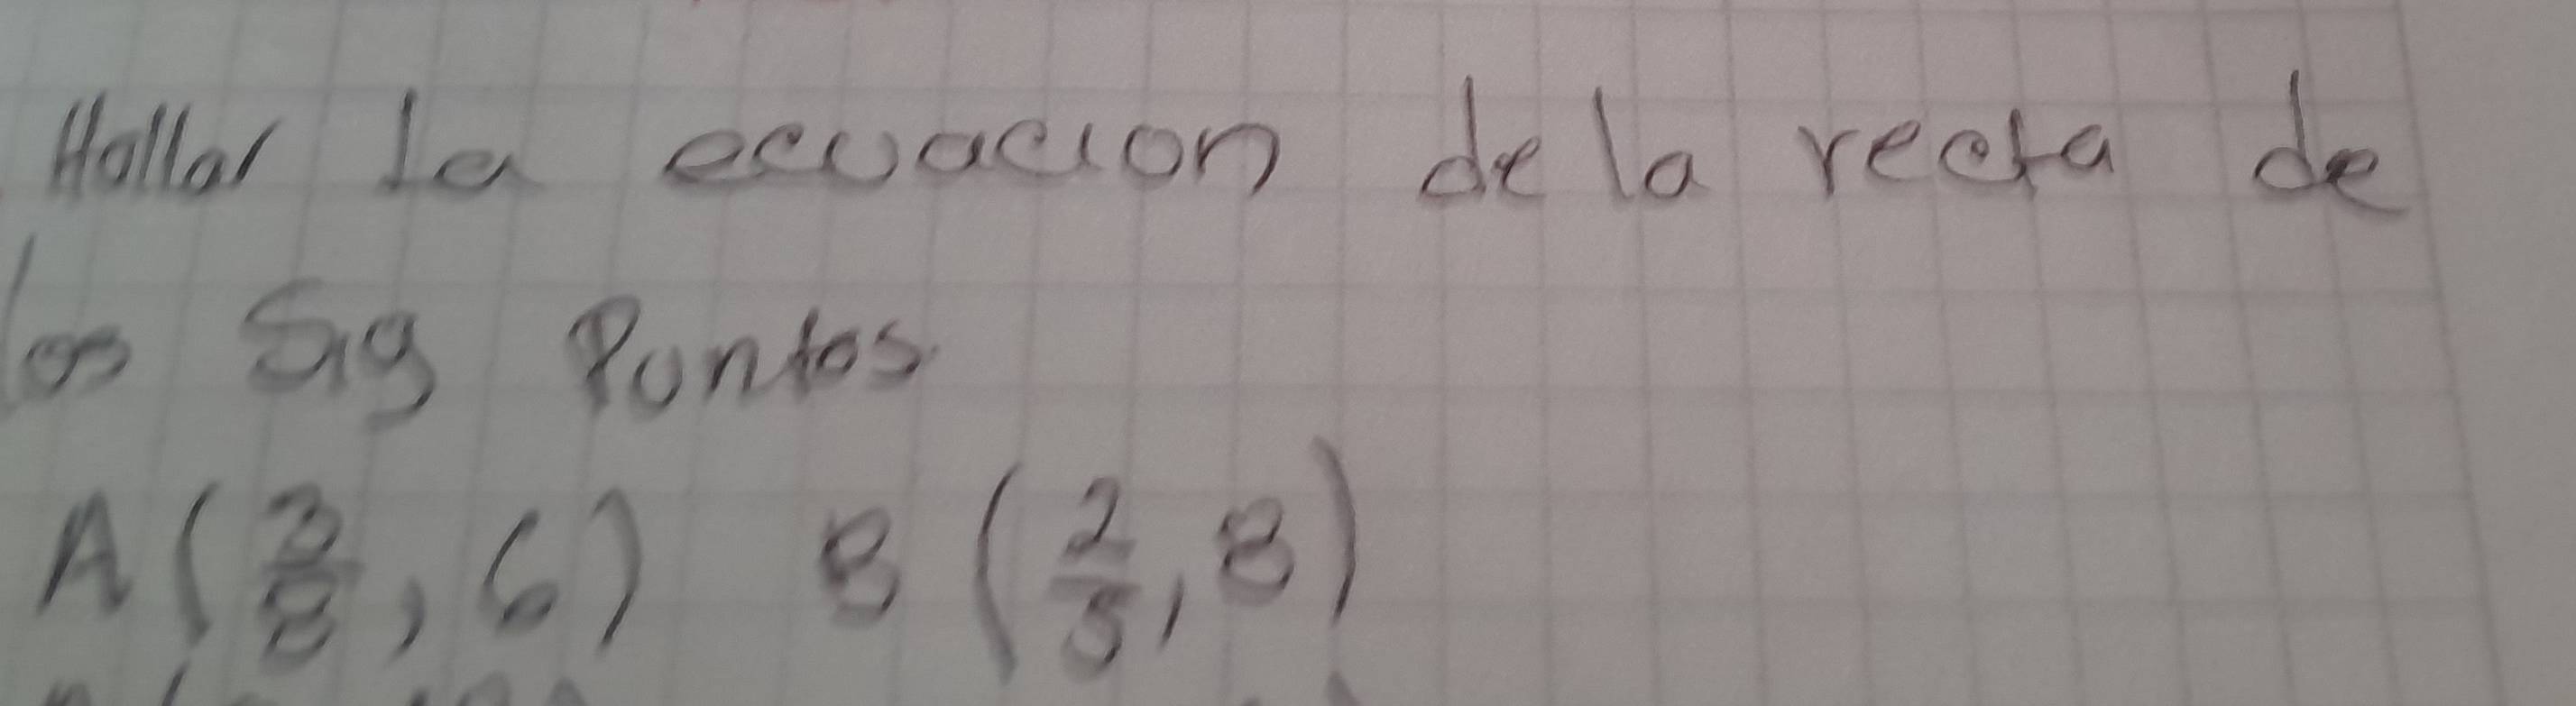 Hallar la ecuacion de la recta de
los Sig Puntos.
A ( 3/8 , 6 ) B ( 2/5 , 8 )